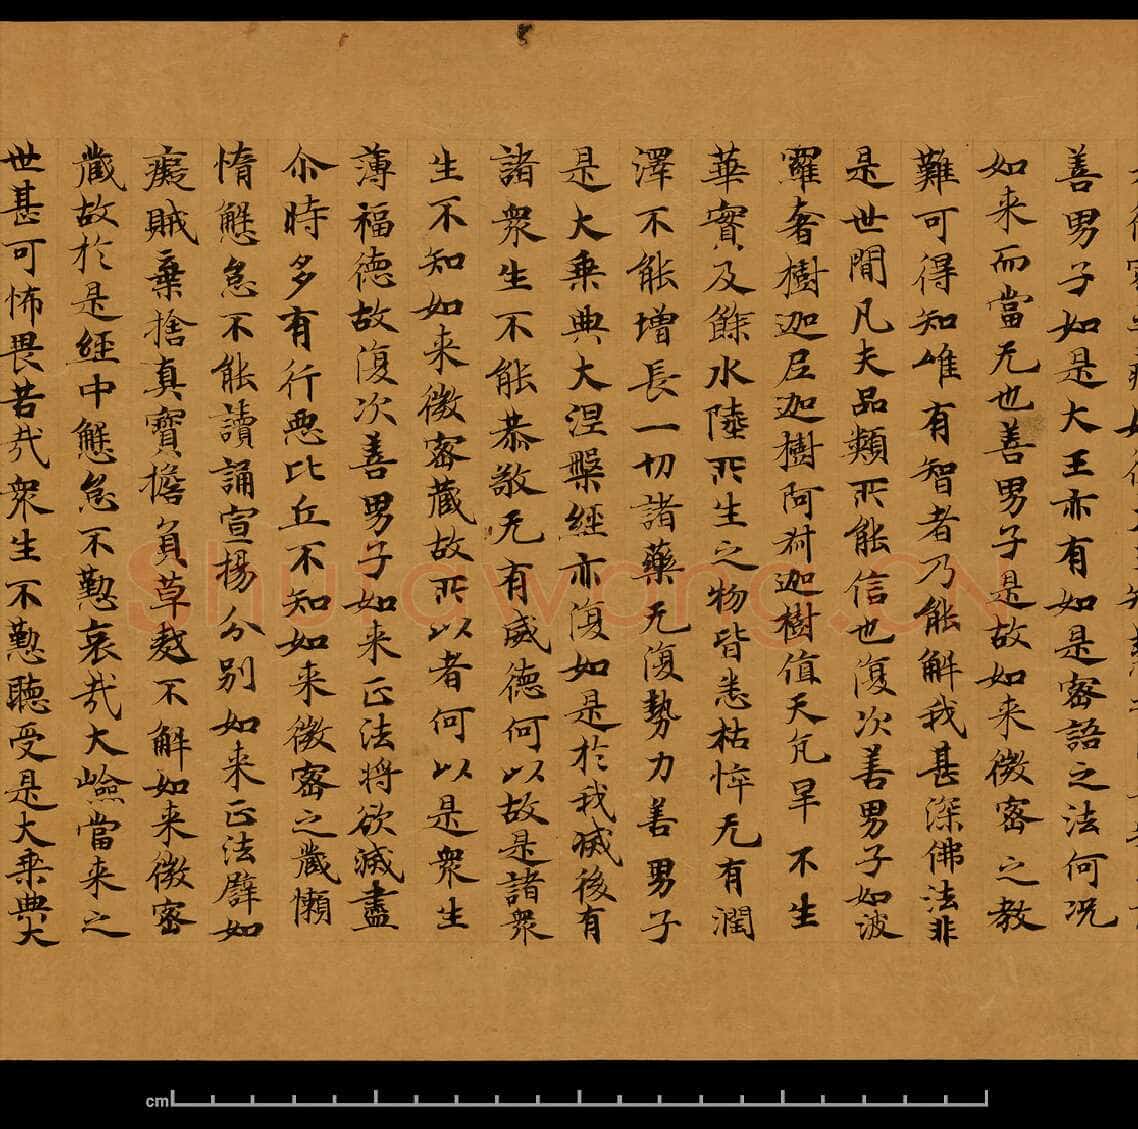 善男子如是大王亦有如是密語之法何况
如来而當无也善男子是故如来微密之教
難可得知唯有智者乃能解我甚深佛法非
是世間凡夫品類所能信也復次善男子如波
羅奢樹迦尼迦樹阿叔迦樹值天亢旱不生
華實及餘水陸所生之物皆悉枯悴无有潤
澤不能增長一切諸藥无復勢力善男子
是大乗典大涅槃經亦復如是於我滅後有
諸衆生不能恭敬无有威德何以故是諸衆
生不知如来微密藏故所以者何以是衆生
薄福德故復次善男子如来正法將欲滅盡
尒時多有行惡比丘不知如来微密之藏懶
惰懈怠不能讀誦宣揚分别如来正法癖如
癡賊棄捨真寶擔負草麩不解如来微密
藏故於是經中懈怠不懃哀哉大嶮當来之
世甚可怖畏苦哉衆生不懃聽受是大乗典大
Shufawang.CN
cm